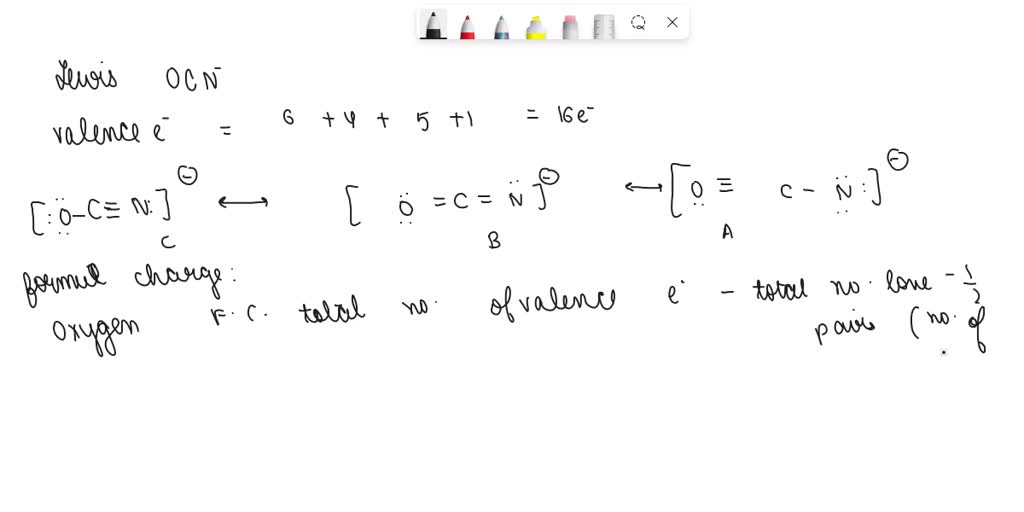 Lewis OCN⁻
valence e⁻ = 6 + 4 + 5 + 1 = 16e⁻
[:Ö-C≡N:]⊖ ↔ [Ö=C=N̈]⊖ ↔ [O≡C-N̈:]⊖
C B A
formul charge:
oxygen F.C. total no. of valence e⁻ - total no. lone - 1/2
pairs (no. of